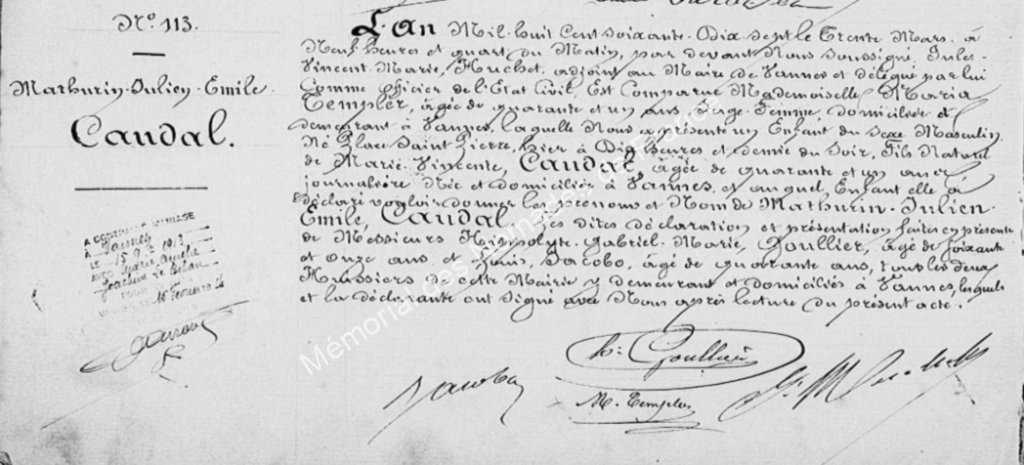 N.º 113.
Mathurin-Julien-Emile
Caudal.
L'An Mil huit Cent soixante-Dix sept le Trente Mars, à
Neuf heures et quart du Matin, par devant Nous soussigné, Jules-
Vincent-Marie, Huchet, adjoint au Maire de Vannes et délégué par lui
Comme officier de l'Etat Civil, Est Comparue Mademoiselle Maria
Templer, âgée de quarante et un ans, Sage-Femme, domiciliée et
demeurant à Vannes, laquelle Nous a présenté un Enfant du Sexe Masculin
Né Place Saint Pierre, hier à Dix heures et demie du Soir, Fils Naturel
de Marie-Vincente, Caudal, âgée de quarante et un ans,
journalière Née et domiciliée à Vannes, et auquel Enfant elle a
déclaré vouloir donner les prénoms et Nom de Mathurin-Julien-
Emile, Caudal, les dites déclaration et présentation faites en présence
de Messieurs Hippolyte-Gabriel-Marie, Goullier, âgé de soixante
et onze ans et Louis, Jacobo, âgé de quarante ans, tous les deux
Huissiers de cette Mairie y demeurant et domiciliés à Vannes, lesquels
et la déclarante ont signé avec Nous après lecture du présent acte.
A CONTRACTÉ MARIAGE
A Vannes
LE 15 9
AVEC Marie Amélie
Joachim Le Bihan
H. Goullier
Jacobo
M. Templer
Mémorial des